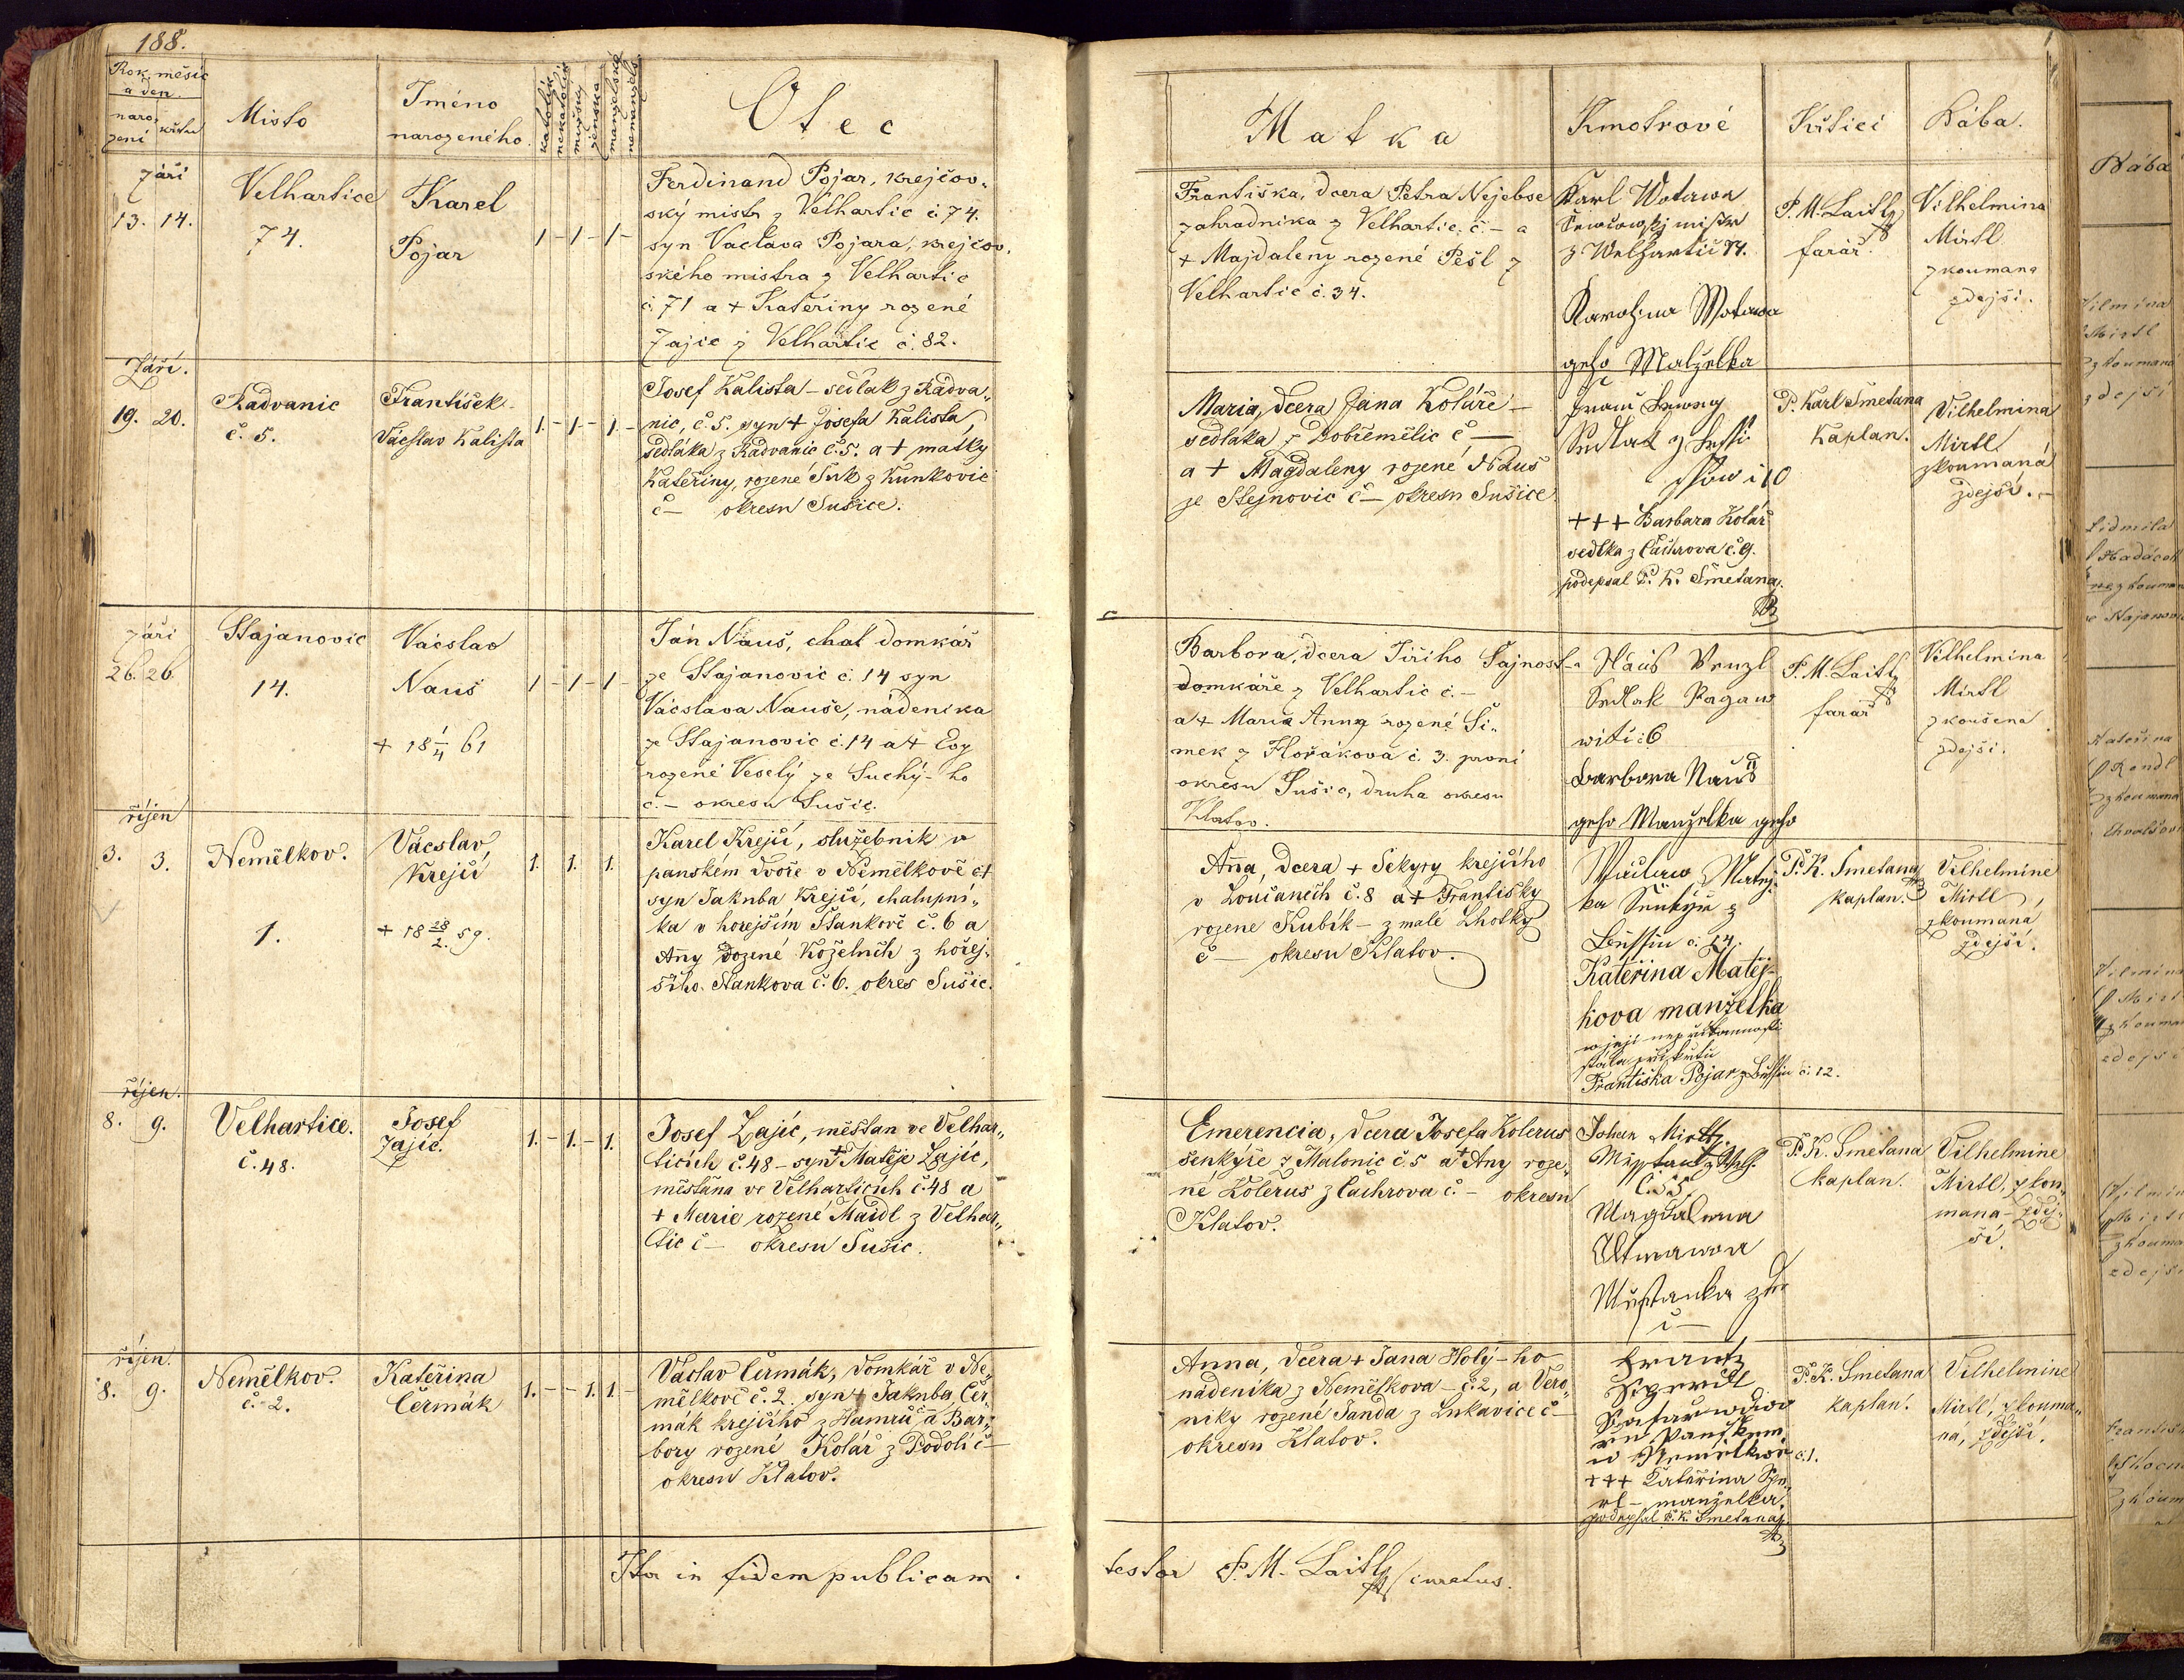 188.
Rok, měsíc
a den
naro-
zení
křtu
Místo
Jméno
narozeného
katolík
nekatolík
mužský
ženská
manželské
nemanžels.
Otec
Matka
Kmotrové
Křtící
Bába.
Září
13. 14.
Velhartice
74.
Karel
Pojar
1 - 1 - 1 -
Ferdinand Pojar, krejčov„
ský mistr z Velhartic č. 74.
syn Vaclava Pojara, krejčov„
ského mistra z Velhartic
č. 71 a + Kateřiny rozené
Zajíc z Velhartic č. 82.
Františka, dcera Petra Nejebse
zahradníka z Velhartic č. – a
+ Majdaleny rozené Pešl z
Velhartic č. 34.
Karl Wotawa
z Welhartic 74.
Karolina Wotawa
geho Malzelka
P. M. Laitl
farář
Vilhelmina
Mirtl
zkoumaná
zdejší.
Září.
19. 20.
Radvanic
č. 5.
František
Václav Kalista
1. - 1 - 1. -
Josef Kalista – sedlák z Radva„
nic, č. 5. syn + Josefa Kalista,
sedláka z Radvanic č. 5. a + matky
Kateřiny, rozené Suk z Kunkovic
č – okresu Sušice.
Maria, dcera Jana Koláře –
sedláka z Dobřemělic č –
a + Magdaleny rozené Nauš
ze Stejnovic č – okresu Sušice
Sedlak z
10
+++ Barbara Kolář
sedlka z Čachrova č. 9.
podepsal P. K. Smetana.
P. Karl Smetana
Kaplan.
Vilhelmina
Mirtl
zkoumaná
zdejší. –
září
26. 26.
Stajanovic
14.
Vácslav
Nauš
+ 18 1/4 61
1 - 1 - 1 -
Ján Nauš, chal domkář
ze Stajanovic č. 14 syn
Vácslava Nauše, nádeníka
ze Stajanovic č. 14 a + Evy
rozené Veselý ze Suchý-ho
č. – okresu Sušic.
Barbora, dcera Jiřího Šajnost
domkáře z Velhartic č. –
a + Marie Anny rozené Ši„
mek z Hořákova č. 3. první
okresu Sušic, druha okresu
Klatov.
Náuš Venzl
Sedlak
6
Barbora Nauš
geho Manzelka
P. M. Laitl
farář
Vilhelmina
Mirtl
zkoušená
zdejší.
říjen
3. 3.
Nemělkov.
1.
Vácslav,
Krejčí
+ 18 28/2. 59.
1. 1. 1.
Karel Krejčí, služebník v
panském dvoře v Němělkově č. 1
syn Jakuba Krejčí, chalupní„
ka v hořejším Staňkově č. 6 a
Anny rozené Koželuh z hořej„
šího Staňkova č. 6. okres Sušic.
Anna, dcera + Sekyry krejčího
v Loučanech č. 8 a + Františky
rozené Kubík – z malé Lhotky
č – okresu Klatov.
Matěj-
ka
č. 14.
Kateřina Matěj-
kova manželka
w její nepřítomnosti
stála při křtu
Františka Pojar z č. 12.
P. K. Smetana
kaplan.
Vilhelmine
Mirtl
zkoumaná
zdejší.
říjen.
8. 9.
Velhartice.
č. 48.
Josef
Zajíc.
1. - 1. - 1.
Josef Zajíc, měšťan ve Velhar„
ticích č. 48 – syn + Matěje Zajíc,
měšťana ve Velharticích č. 48 a
+ Marie rozené Maidl z Velhar„
tic č – okresu Sušic.
Emerencia, dcera Josefa Kolerus
šenkýře z Malonic č. 5 a + Any roze„
né Kolerus z Čachrova č. – okresu
Klatov.
Johan Mirtl.
Č. 55.
Magdalena
P. K. Smetana
kaplan.
Vilhelmine
Mirtl, zkou„
maná – zdej„
ší.
říjen.
8. 9.
Nemělkov.
č. 2.
Kateřina
Čermák
1. - - 1. 1. -
Václav Čermák, domkář v Ne„
mělkově č. 2. syn + Jakuba Čer„
mák krejčího z Hamrů č – a Bar„
bory rozené Kolář z Podolí č –
okresu Klatov.
Anna, dcera + Jana Holý-ho
nádeníka z Nemělkova – č. 2, a Vero„
niky rozené Janda z Lukavice č –
okresu Klatov.
Frantz
w Nemelkow č. 1.
+++ Kateřina
– manželka.
podepsal P. K. Smetana.
P. K. Smetana
kaplan.
Vilhelmine
Mirtl, zkouma„
ná, zdejší.
Ita in fidem publicam
testor P. M. Laitl curatus.
Bába
Vilmina
Mirtl
zkoumana
zdejší
Lidmila
Kateřina
Rendl
zkoumana